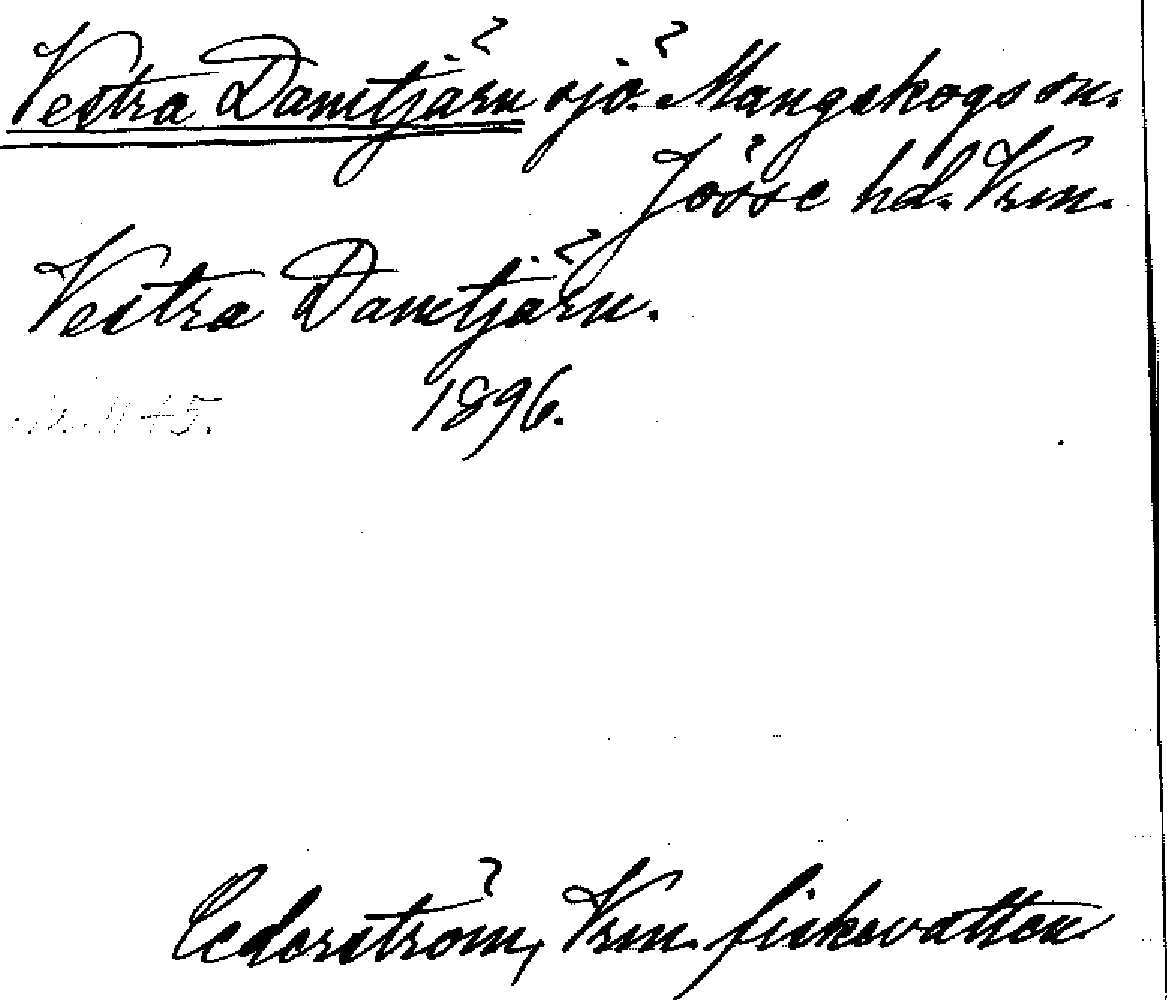 Vestra Damtjärn sjö. Mangskogs sn.
Jösse hd. Vrm.
Vestra Damtjärn.
1896.
Cederström, Vrm. fiskevatten